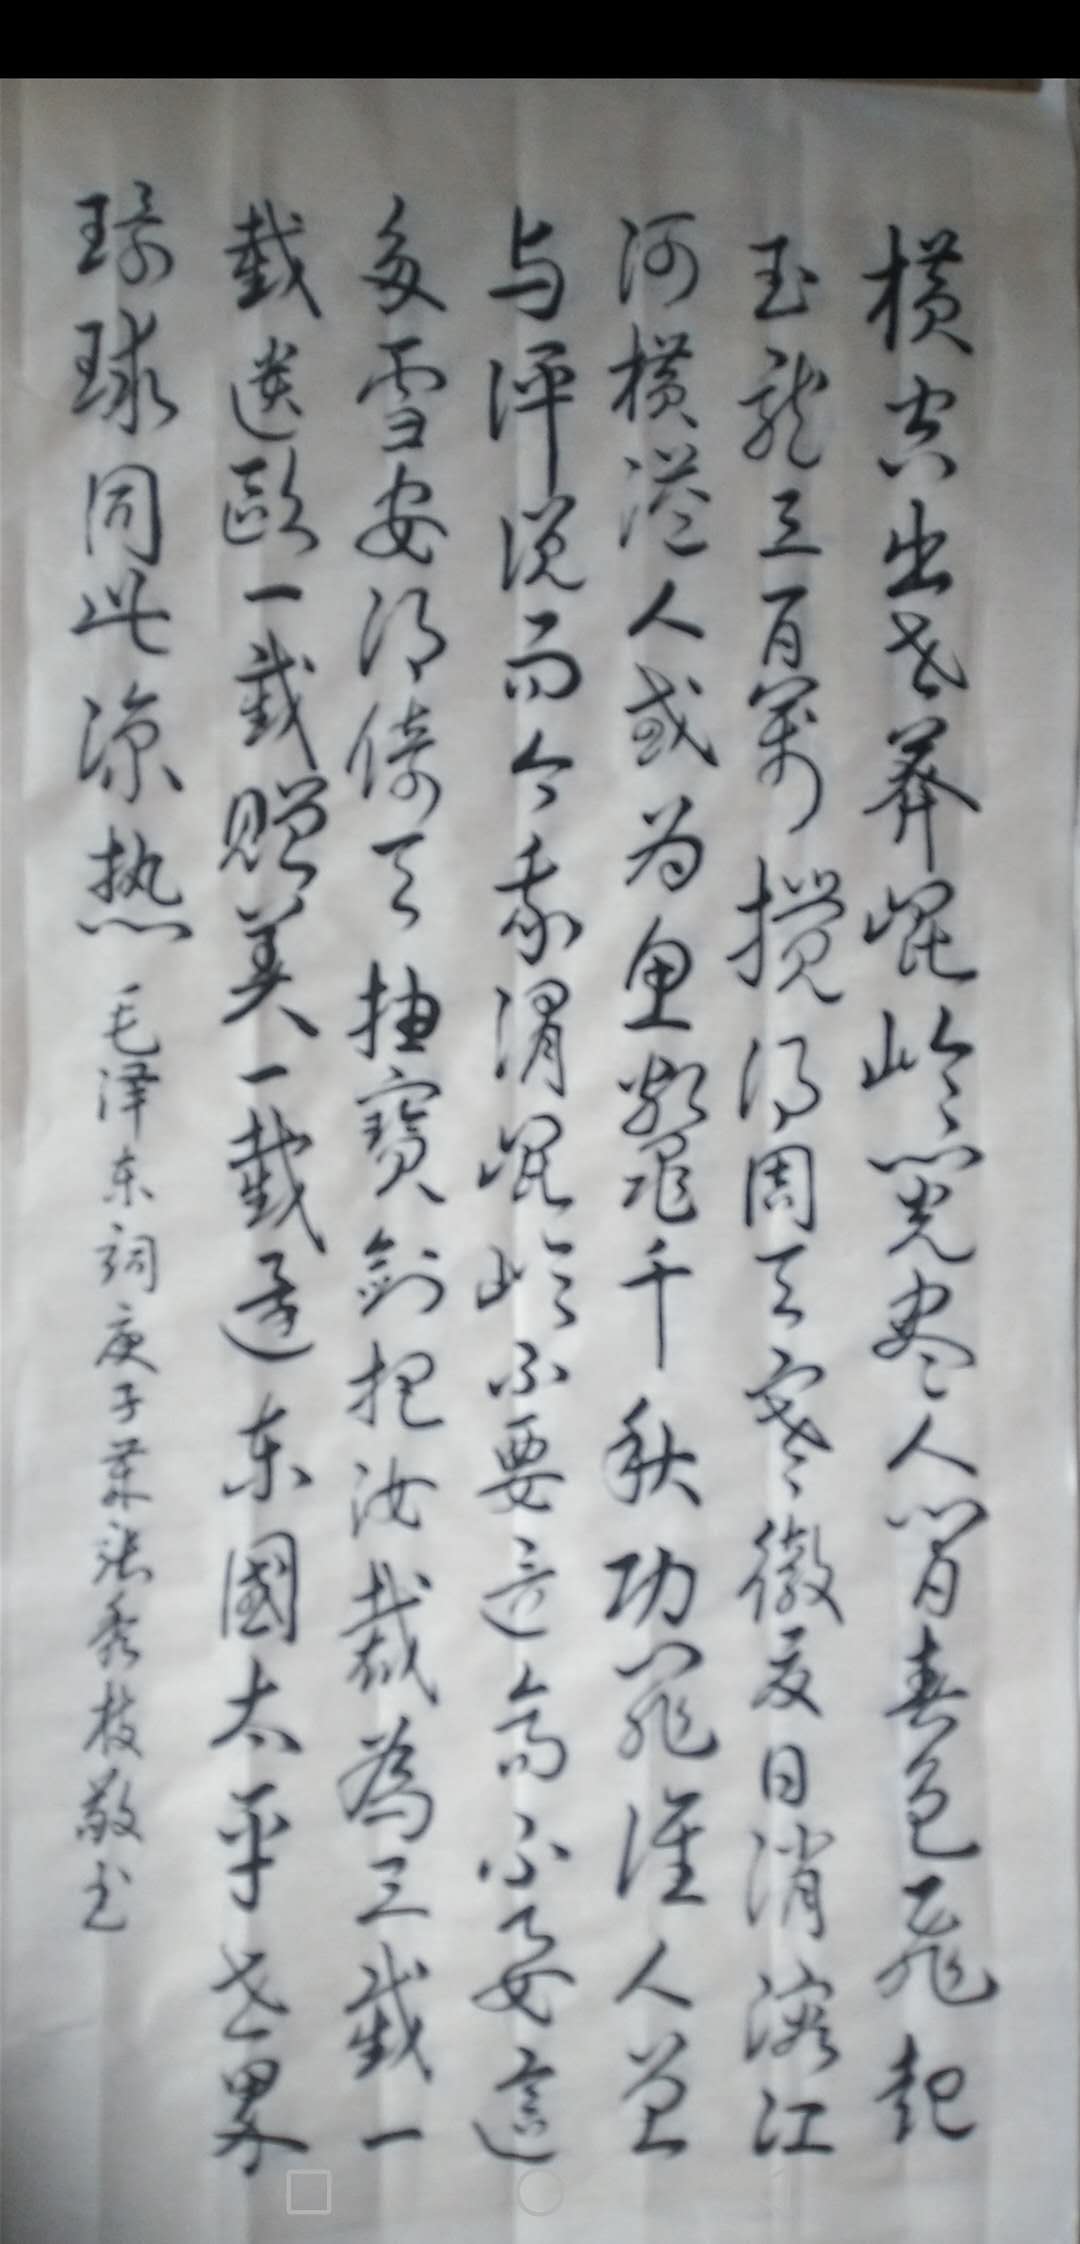 横空出世莽崐崘阅尽人间春色飛起
玉龍三百萬搅得周天寒徹夏日消溶江
河横溢人或为鱼鳖千秋功罪谁人曾
与评说而今我谓崐崘不要这高不要這
多雪安得倚天抽寶劍把汝裁為三截一
截送歐一截赠美一截還东國太平世界
環球同此凉热 毛泽东词庚子 张秀枝敬书